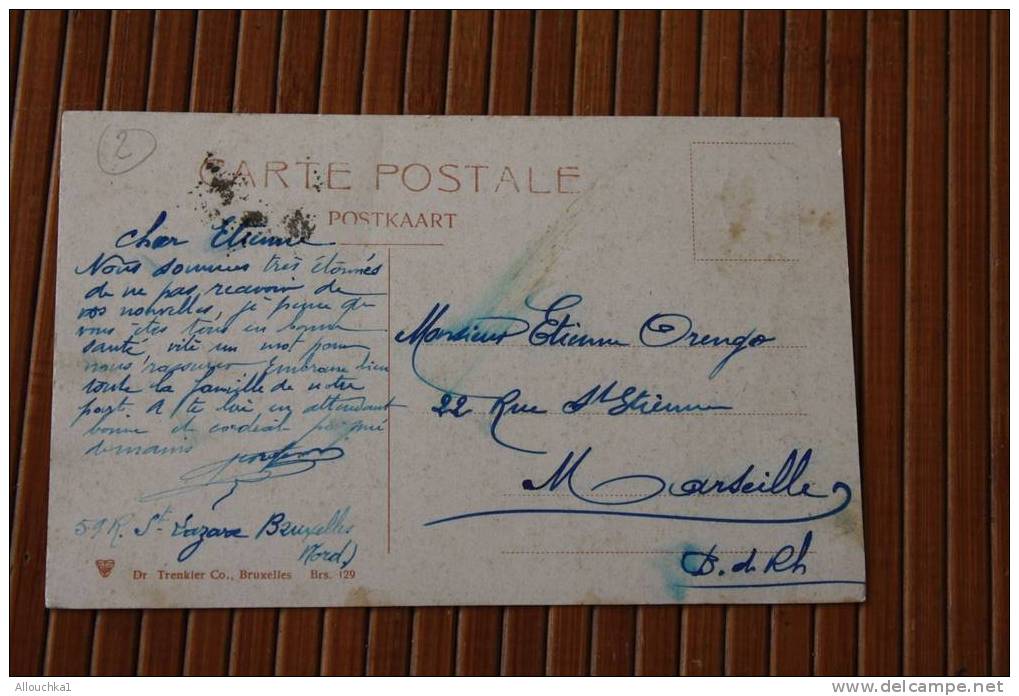 2
CARTE POSTALE
POSTKAART
Cher Etienne
Nous sommes très étonnés
de ne pas recevoir de
vos nouvelles, je pense que
vous êtes tous en bonne
santé, vite un mot pour
nous rassurer. Embrasse bien
toute la famille de notre
part. A te lire, en attendant
bonne et cordiale poignée
de mains
59 R. St Lazare Bruxelles
Nord)
Monsieur Etienne Orengo
22 Rue St Etienne
Marseille
B. du Rh
Dr Trenkler Co., Bruxelles Brs. 129
Allouchka1
http://www.delcampe.net